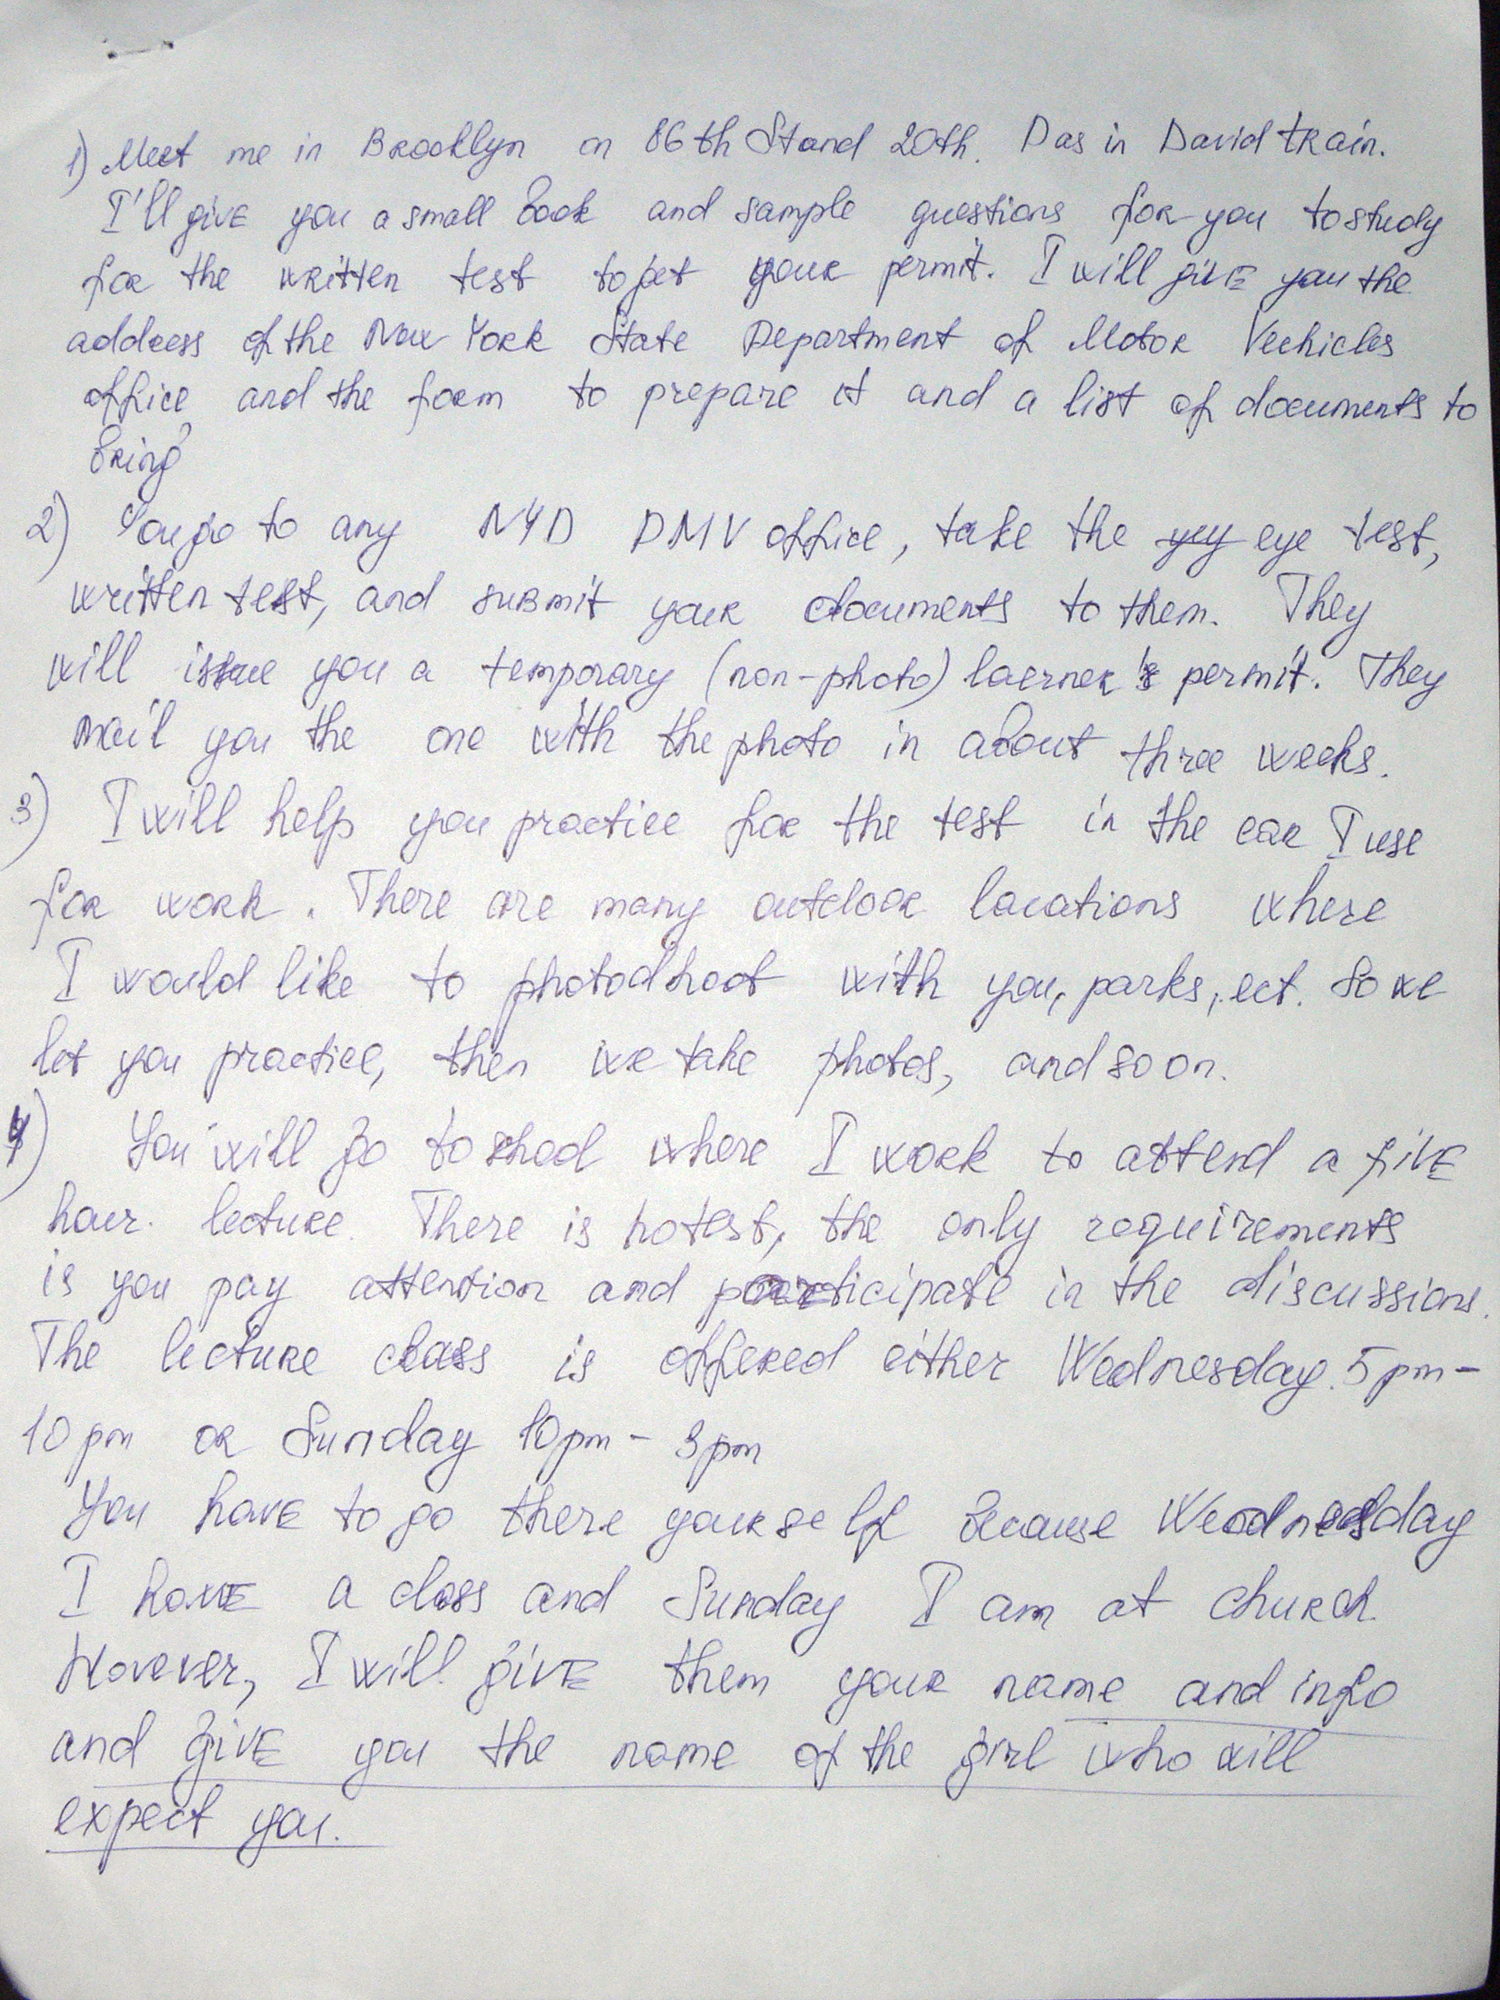 1) Meet me in Brooklyn on 86th Stand 20th. Das in David train.
I'll give you a small book and sample questions for you to study
for the written test to get your permit. I will give you the
address of the New York State Department of Motor Vechicles
office, and the form to prepare it and a list of documents to
bring
2) You go to any NYD DMV office, take the yey eye test,
written test, and submit your documents to them. They
will issue you a temporary (non-photo) laerner's permit. They
mail you the one with the photo in about three weeks.
3) I will help you practice for the test in the car I use
for work. There are many outdoor locations where
I would like to photodhoot with you, parks, ect. So we
let you practice, then we take photos, and so on.
4) You will go to shool where I work to attend a five
hour lecture. There is no test, the only requirements
is you pay attention and participate in the discussions.
The lecture class is offered either Wednesday 5 pm -
10 pm or Sunday 10 pm - 3 pm
You have to go there yourself because Wednesday
I have a class and Sunday I am at church.
Hovever, I will give them your name and info
and give you the name of the girl who will
expect you.